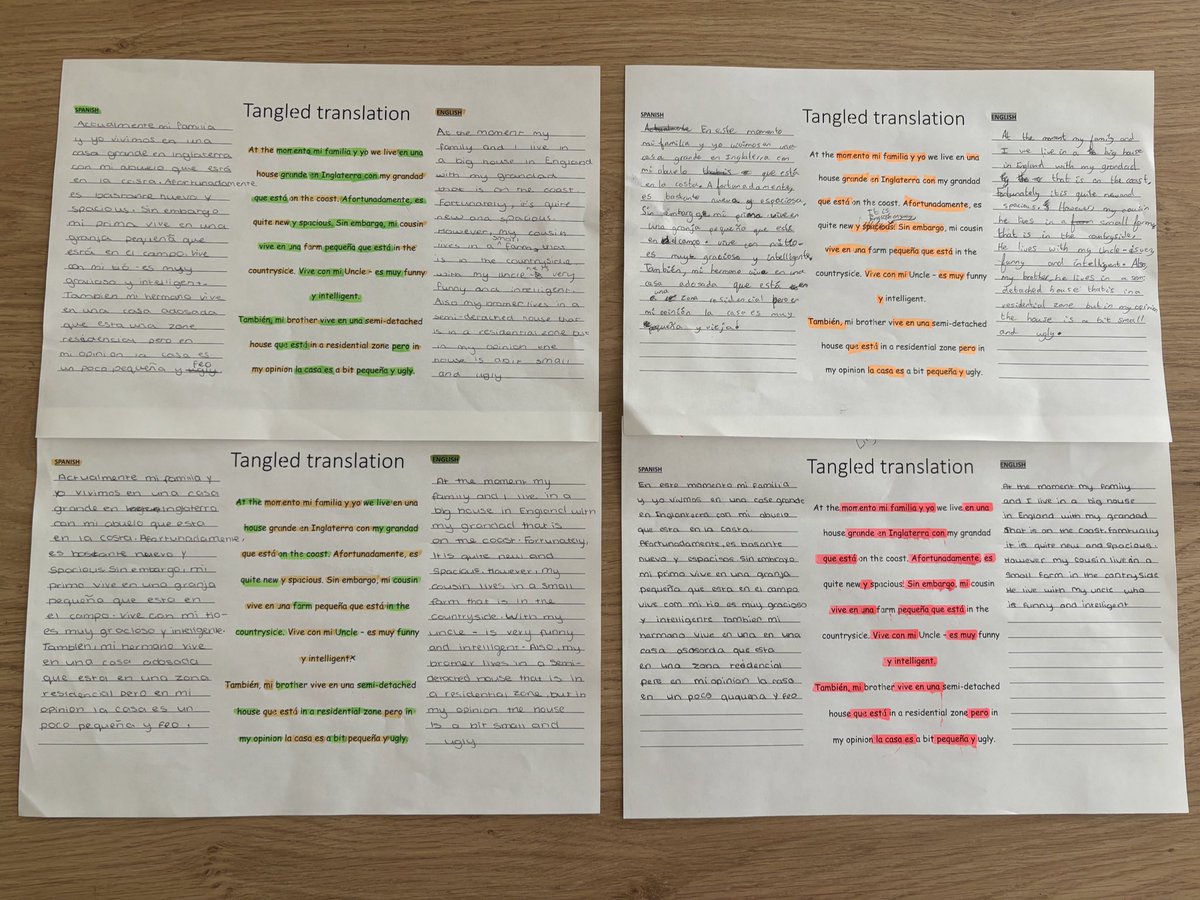 SPANISH
Tangled translation
ENGLISH
Actualmente mi familia
y yo vivimos en una
casa grande en inglaterra
con mi abuelo que está
en la costa. Afortunadamente
es bastante nuevo y
spacious. Sin embargo
mi prima vive en una
granja pequeña que
está en el campo. Vive
con mi tío - es muy
gracioso y intelligent.
Tambien mi hermano vive
en una casa adosada
que esta una zone
residencial pero en
mi opinion la casa es
un poco pequeña y feo
At the momento mi familia y yo we live en una
house grande en Inglaterra con my grandad
que está on the coast. Afortunadamente, es
quite new y spacious. Sin embargo, mi cousin
vive en una farm pequeña que está in the
countryside. Vive con mi Uncle - es muy funny
y intelligent.
También, mi brother vive en una semi-detached
house que está in a residential zone pero in
my opinion la casa es a bit pequeña y ugly.
At the moment my
family and I live in
a big house in England
with my grandad
that is on the coast.
Fortunately, it's quite
new and spacious.
However, my cousin
lives in a small farm that
is in the countryside,
with my uncle - very
funny and intelligent.
Also my brother lives in a
semi-detached house that
is in a residential zone but
in my opinion the
house is a bit small
and ugly
SPANISH
Tangled translation
ENGLISH
En este momento
mi familia y yo vivimos en una
casa grande en Inglaterra con
mi abuelo que está
en la costa. Afortunadamente,
es bastante nueva y espaciosa,
Sin embargo mi prima vive en
una granja pequeña que está
en el campo. vive con mi tío-
es muy gracioso y intelligente,
También, mi hermano vive en una
casa adosada que está en
una zona residencial pero en
mi opinión la casa es muy
pequeña y vieja.
At the momento mi familia y yo we live en una
house grande en Inglaterra con my grandad
que está on the coast. Afortunadamente, es
It is
quite new y spacious. Sin embargo, mi cousin
vive en una farm pequeña que está in the
countryside. Vive con mi Uncle - es muy funny
y intelligent.
También, mi brother vive en una semi-detached
house que está in a residential zone pero in
my opinion la casa es a bit pequeña y ugly.
At the moment my family and
I we live in a big house
in England with my grandad
that is on the coast,
fortunately it is quite new and
spacious. However my cousin
he lies in a small farm
that is in the countryside,
He lives with my Uncle-
funny and intelligent. Also,
my brother he lives in a semi
detached house that is in a
residential zone but in my opinion
the house is a bit small
and ugly.
SPANISH
Tangled translation
ENGLISH
Actualmente mi familia y
yo vivimos en una casa
grande en Inglaterra
con mi abuelo que esta
en la costa. Afortunadamente,
es bastante nuevo y
spacious. Sin embargo, mi
primo vive en una granja
pequeña que esta en
el campo. Vive con mi tio-
es muy gracioso y inteligente.
Tambien, mi hermano vive
en una casa adosada
que esta en una zona
residencial pero en mi
opinion la casa es un
poco pequeña y feo.
At the momento mi familia y yo we live en una
house grande en Inglaterra con my grandad
que está on the coast. Afortunadamente, es
quite new y spacious. Sin embargo, mi cousin
vive en una farm pequeña que está in the
countryside. Vive con mi Uncle - es muy funny
y intelligent.
También, mi brother vive en una semi-detached
house que está in a residential zone pero in
my opinion la casa es a bit pequeña y ugly.
At the moment my
family and I live in a
big house in England with
my grandad that is
on the coast. Fortunately,
It is quite new and
spacious. However, my
cousin lives in a small
farm that is in the
countryside. With my
uncle - is very funny
and intelligent. Also, my
brother lives in a semi-
detached house that is in
a residential zone, but in
my opinion the house
is a bit small and
ugly
SPANISH
Tangled translation
ENGLISH
En este momento mi familia
y yo vivimos en una casa grande
en Inglanterra con mi abuelo
que esta en la costa.
Afortunadamente, es basante
nuevo y espacinos. Sin embrayo
mi primo vive en una granja
pequeña que esta en el campo
vive con mi tio es muy gracioso
y intelligente tambien mi
hermano vive en una en una
casa asosorda que esta
en una zona residencial
pero en mi opinion la casa
en un poco puquena y feo
At the momento mi familia y yo we live en una
house grande en Inglaterra con my grandad
que está on the coast. Afortunadamente, es
quite new y spacious! Sin embargo, mi cousin
vive en una farm pequeña que está in the
countryside. Vive con mi Uncle - es muy funny
y intelligent.
También, mi brother vive en una semi-detached
house que está in a residential zone pero in
my opinion la casa es a bit pequeña y ugly.
At the moment my family
and I live in a big house
in England with my grandad
that is on the coast. Fortunatly
it is quite new and spacious.
However my cousin live in a
small farm in the contryside
He live with my uncle who
is funny and intelligent